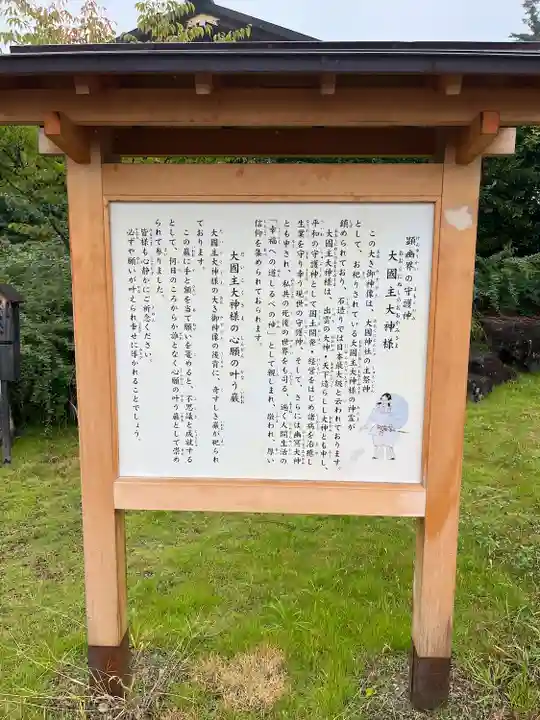 顕幽界の守護神
大國主大神様
この大き御神像は、大國神社の主祭神
として、お祀りされている大國主大神様の神霊が
鎮められており、石造りでは日本最大級と云われております。
大國主大神様は、出雲の大神、天下造らしし大神とも申し、
平和の守護神として国土開発・経営をはじめ諸病を治癒し
生業を守り幸う現世の守護神、そして、さらには幽冥大神
とも申され、私共の死後の世界をも司る、遍く人間生活の
「幸福への道しるべの神」として親しまれ、敬われ、厚い
信仰を集められております。
大國主大神様の心願の叶う巖
大國主大神様の大き御神像の後背に、奇すしき巖が祀られ
ております。
この巖に手と額を当て願いを篭めると、不思議と成就する
として、何日のころからか誰となく心願の叶う巖として崇め
られて参りました。
皆様も心静かにご祈念ください。
必ずや願いが叶えられ幸せに導かれることでしょう。